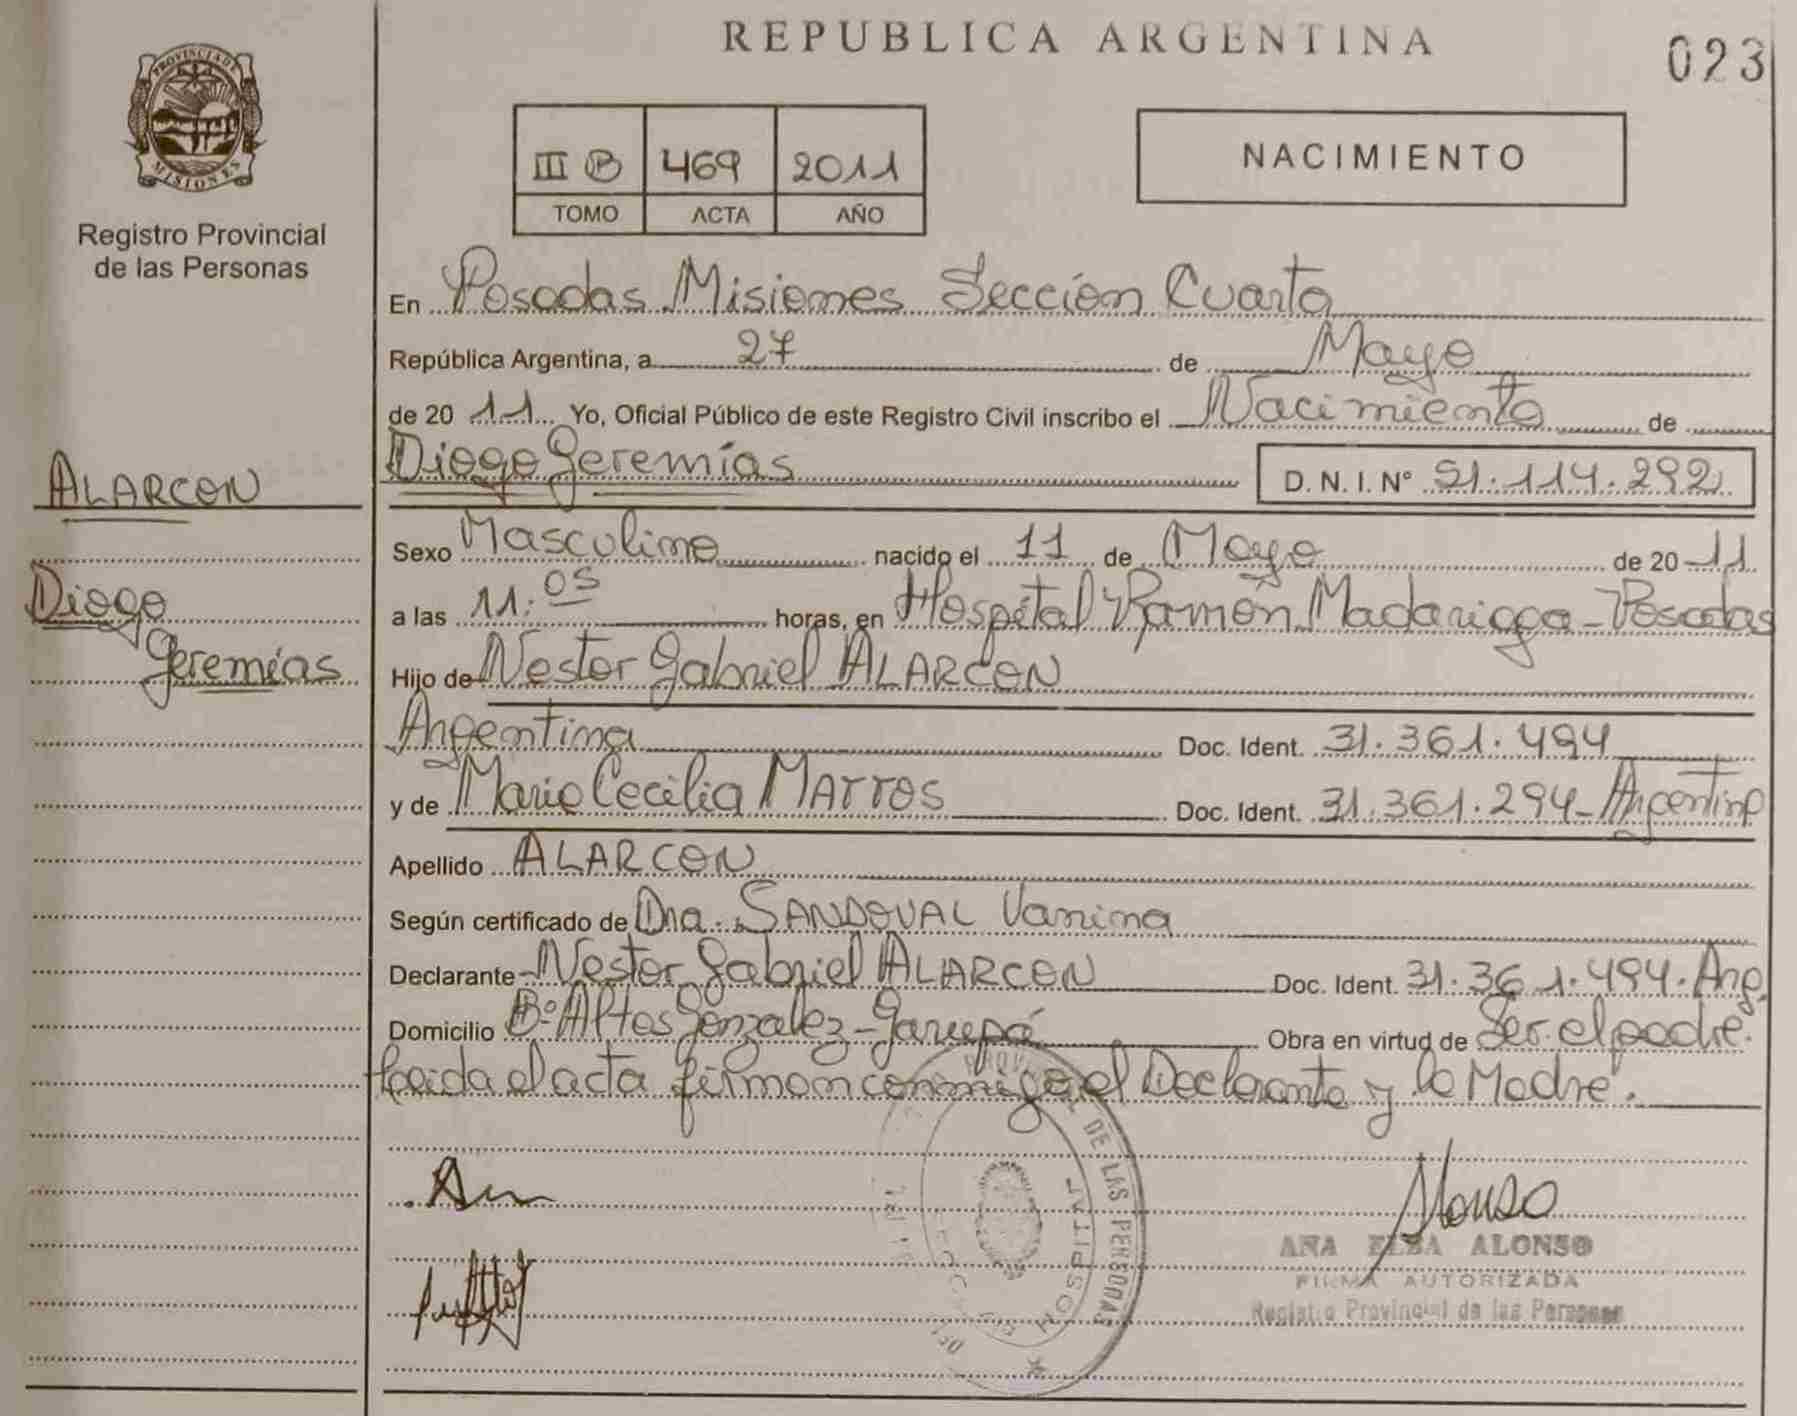 REPUBLICA ARGENTINA
023
PROVINCIA DE MISIONES
Registro Provincial
de las Personas
III B 469 2011
TOMO ACTA AÑO
NACIMIENTO
En Posadas Misiones Sección Cuarta
República Argentina, a 27 de Mayo
de 20 11 Yo, Oficial Público de este Registro Civil inscribo el Nacimiento de
Diogo Geremías D. N. I. N° 51.114.292
ALARCON
Diogo
Geremías
Sexo Masculino nacido el 11 de Mayo de 20 11
a las 11:05 horas, en Hospital Ramón Madariaga - Posadas
Hijo de Nestor Gabriel ALARCON
Argentina Doc. Ident. 31.361.494
y de Maria Cecilia MATTOS Doc. Ident. 31.361.294 - Argentina
Apellido ALARCON
Según certificado de Dra. SANDOVAL Vanina
Declarante Nestor Gabriel ALARCON Doc. Ident. 31.361.494. Arg.
Domicilio B° Altos Gonzalez - Garupá Obra en virtud de Ser el padre.
Leida el acta firman conmigo el Declarante y la Madre.
DE LAS PERSONAS
HOSPITAL
Alonso
ANA ELBA ALONSO
FIRMA AUTORIZADA
Registro Provincial de las Personas